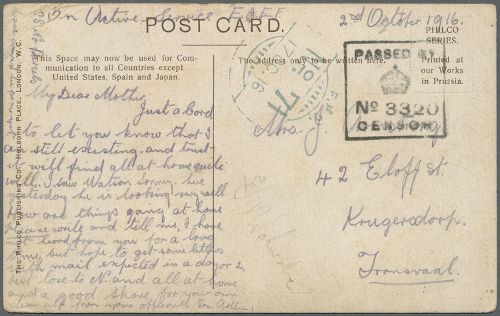 On Active Service E.A.E.F.
2nd October 1916.
POST CARD.
PHILCO
SERIES.
This Space may now be used for Com-
munication to all Countries except
United States, Spain and Japan.
The address only to be written here.
Printed at
our Works
in Prussia.
THE PHILCO PUBLISHING CO., HOLBORN PLACE, LONDON, W.C.
My Dear Mother
Just a Card
to let you know that I
am still existing, and trust
it will find all at home quite
well. I saw Watson here
yesterday he is looking very well
How are things gang at home
please write and tell me, I have
not heard from you for a long
time, but hope to get some letters
with mail expected in a day or 2,
best love to N. and all at home
and a good share for your own
dear self from your affect. Son
PASSED BY
No 3320
CENSOR
71
Mrs. J.
42 Eloff St.
Krugersdorp.
Transvaal.